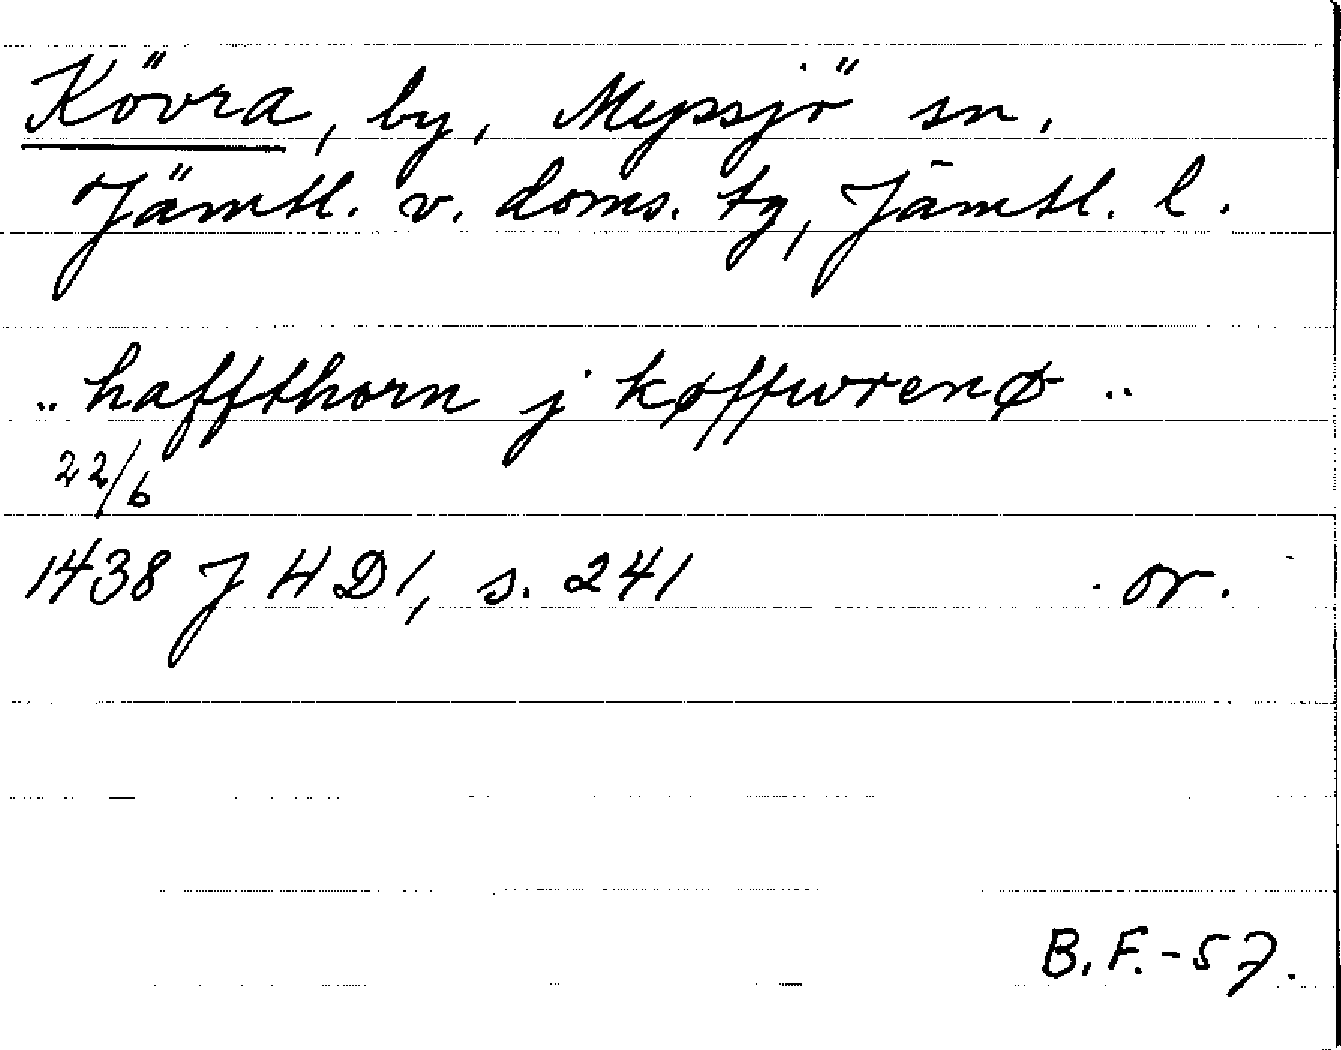 Kövra, by, Myssjö sn,
Jämtl. v. doms. tg, Jämtl. l.
.. haffthorn j køffwrenø ..
22/6
1438 JHD1, s. 241 or.
B.F.-57.